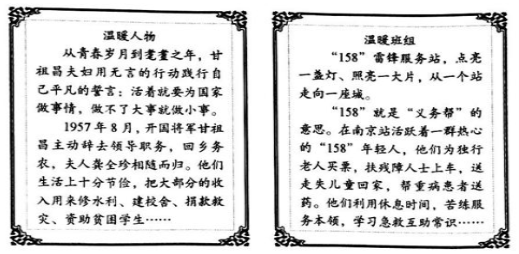 温暖人物
从青春岁月到耄耋之年，甘
祖昌夫妇用无言的行动践行自
己平凡的誓言：活着就要为国家
做事情，做不了大事就做小事。
1957年8月，开国将军甘祖
昌主动辞去领导职务，回乡务
农，夫人龚全珍相随而归。他们
生活上十分节俭，把大部分的收
入用来修水利、建校舍、捐款救
灾、资助贫困学生……
温暖班组
“158”雷锋服务站，点亮
一盏灯、照亮一大片，从一个站
走向一座城。
“158”就是“义务帮”的
意思。在南京站活跃着一群热心
的“158”年轻人，他们为独行
老人买票，扶残障人士上车，送
走失儿童回家，帮重病患者送
药。他们利用休息时间，苦练服
务本领，学习急救互助常识……